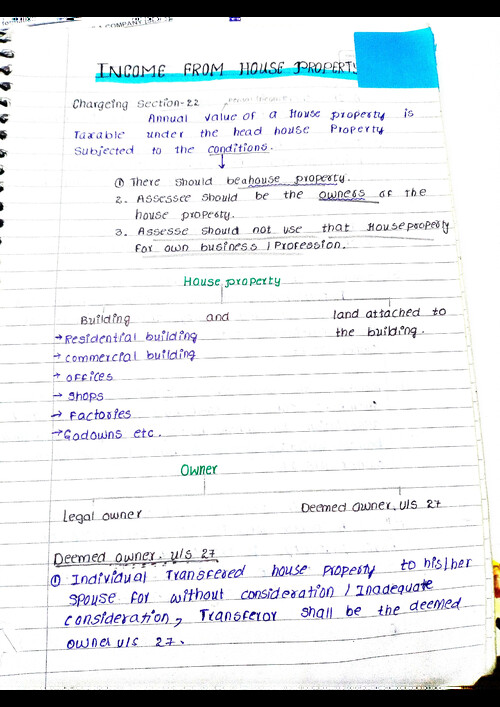 INCOME FROM HOUSE PROPERTY
Chargeing Section-22
Annual value of a House property is
Taxable under the head house Property
Subjected to the conditions.
① There should be a house property.
2. Assessee should be the owners of the
house property.
3. Assesse should not use that House property
for own business / Profession.
House property
Building and land attached to
the building.
→ Residential building
→ commercial building
→ offices
→ Shops
→ Factories
→ Godowns etc.
Owner
Legal owner
Deemed owner. U/S 27
Deemed owner. U/S 27
① Individual Transfered house Property to his/her
spouse for without consideration / Inadequate
consideration, Transferor shall be the deemed
owner u/s 27.